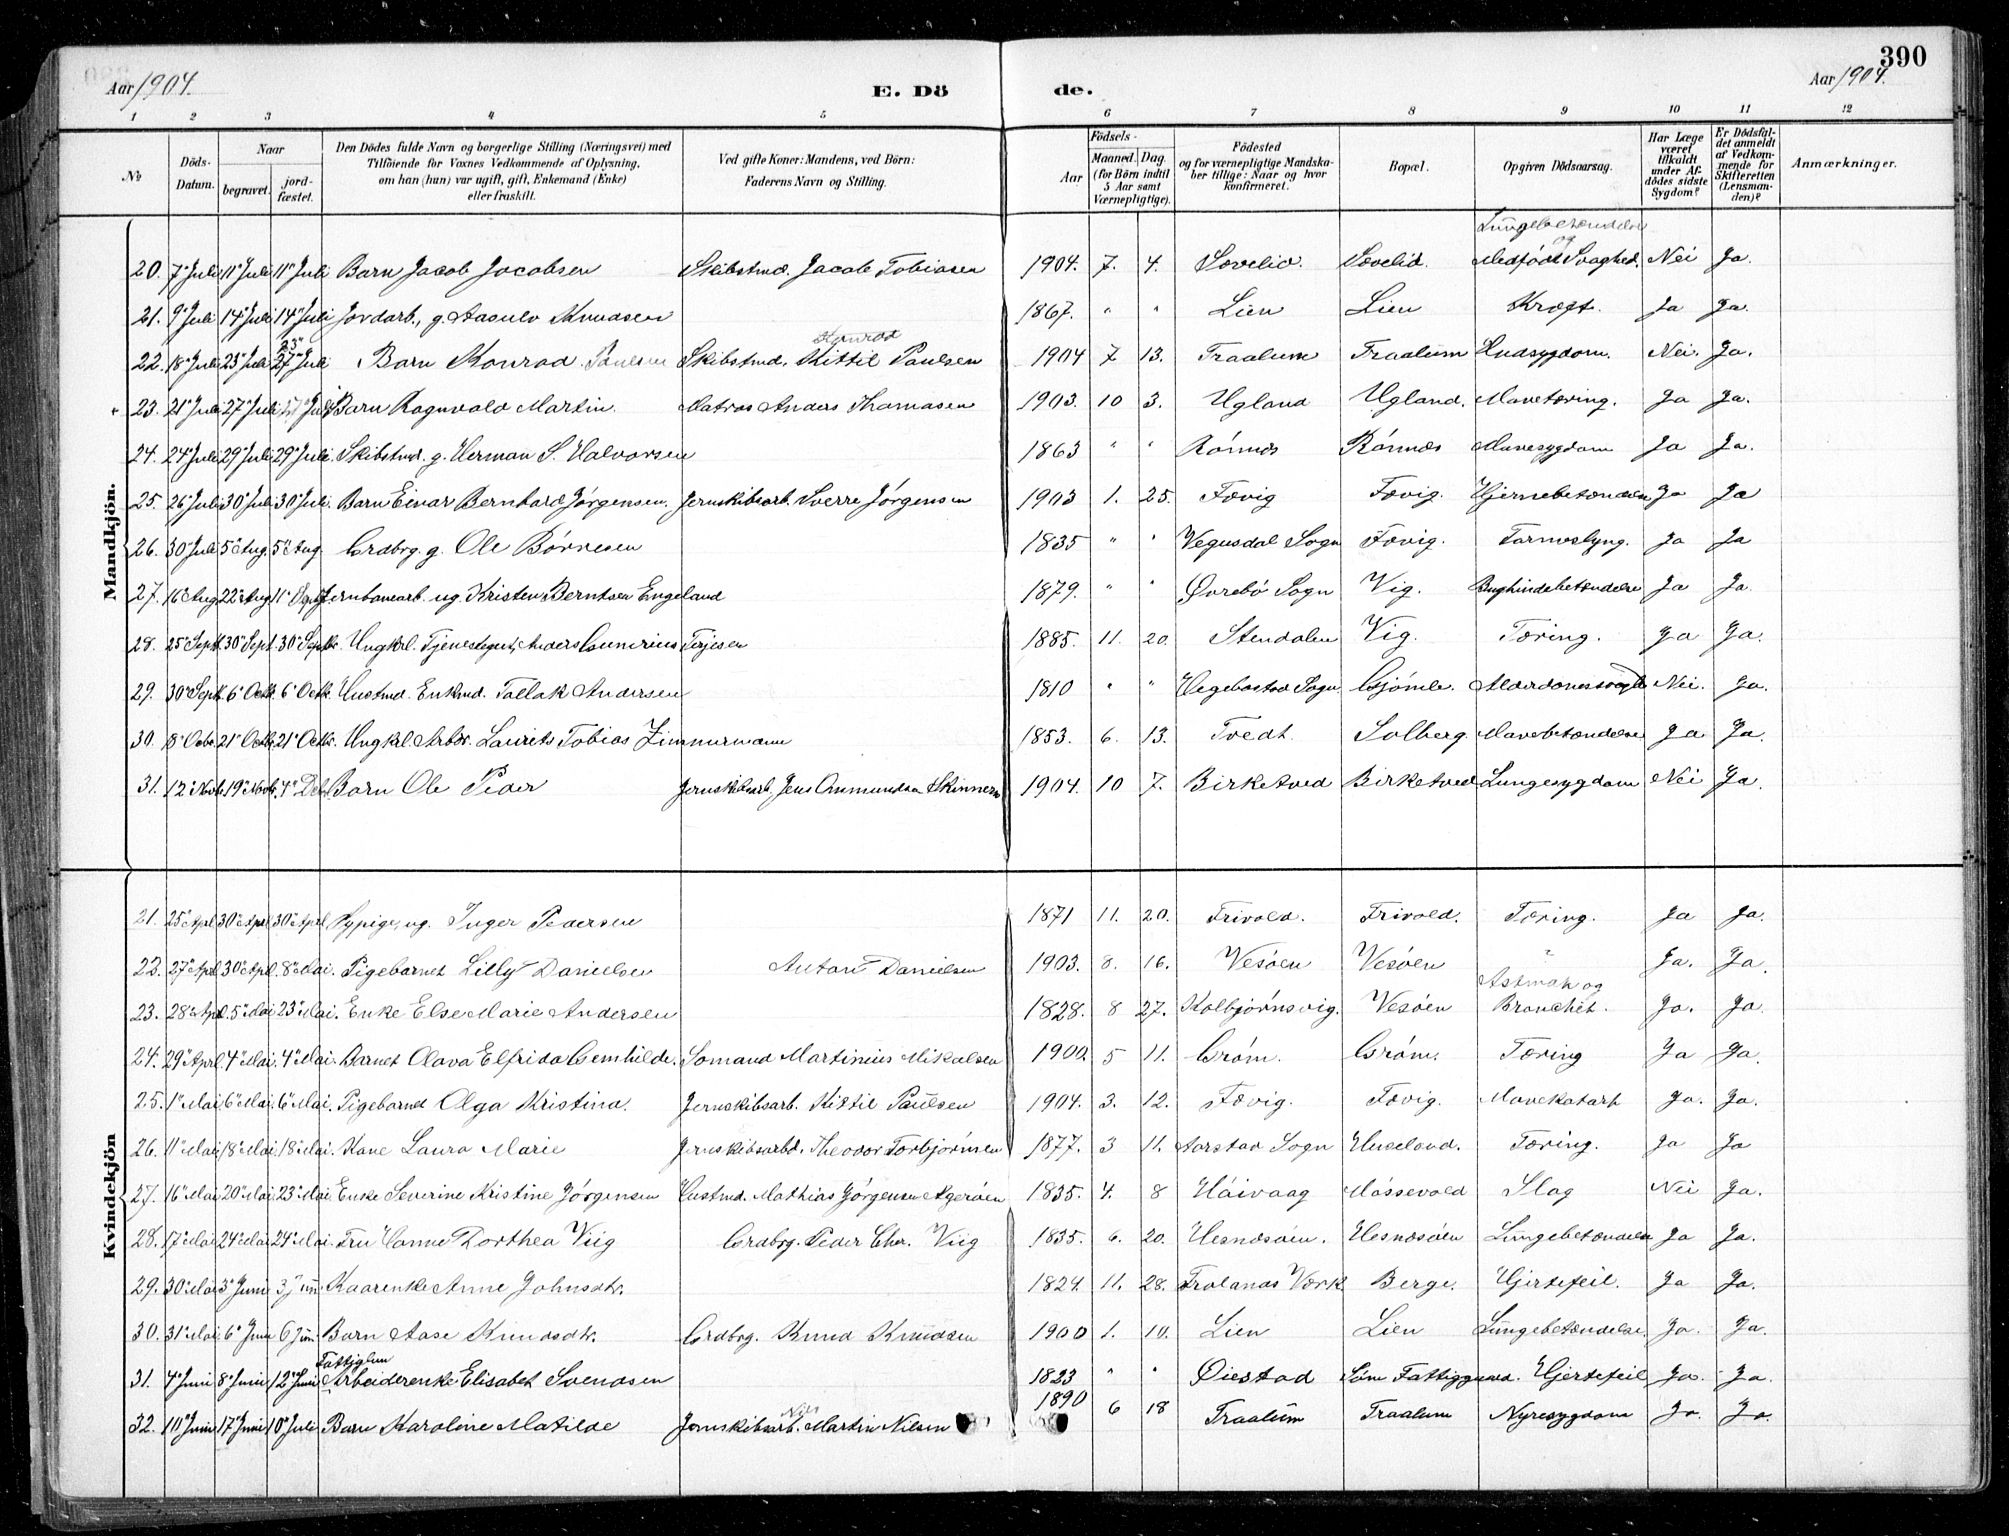 390
Aar 1904.
E. Dö de.
Aar 1904.
1 2 3 4 5 6 7 8 9 10 11 12
No
Döds-Datum.
Naar
begravet.
jord-fæstet.
Den Dödes fulde Navn og borgerlige Stilling (Næringsvei) med
Tilföiende for Voxnes Vedkommende af Oplysning,
om han (hun) var ugift, gift, Enkemand (Enke)
eller fraskilt.
Ved gifte Koner: Mandens, ved Börn:
Faderens Navn og Stilling.
Födsels-
Aar
Maaned. Dag.
(for Börn indtil
5 Aar samt
Værnepligtige).
Födested
og for værnepligtige Mandska-
ber tillige: Naar og hvor
konfirmeret.
Bopæl.
Opgiven Dödsaarsag.
Har Læge
været
tilkaldt
under Af-
dödes sidste
Sygdom?
Er Dödsfal-
det anmeldt
af Vedkom-
mende for
Skifteretten
(Lensman-
den)?
Anmærkninger.
Mandkjön.
Lungebetændelse og
20. 7 Juli 11 Juli 11 Juli Barn Jacob Jacobsen Skibstmd. Jacob Tobiasen 1904. 7. 4. Sævelid. Sævelid. Medfödt Svaghed. Nei Ja.
21. 9 Juli 14 Juli 14 Juli Jordarb., g. Aasulv Knudsen 1867. " " Lien Lien Kræft. Ja Ja.
22. 18 Juli 23 Juli 27 Juli Barn Konrad Paulsen Skibstmd. Kittil Paulsen 1904 7 13. Traalum Traalum Hudsygdom. Nei. Ja.
23. 21 Juli 27 Juli 27 Juli Barn Ragnvald Martin. Matros Anders Thomasen 1903. 10 3. Ugland Ugland. Mavetæring. Ja Ja.
24. 24 Juli 29 Juli 29 Juli. Skibstmd. g. Herman S. Halvorsen 1863 " " Rónnes Rónnes Mavesygdom Ja Ja.
25. 26 Juli 30 Juli 30 Juli. Barn Einar Bernhard Jórgensen. Jernskibsarb. Sverre Jórgensen 1903 1. 25. Fævig Fævig. Hjernebetændelse Ja Ja
26. 30 Juli 5 Aug. 5 Aug. Grdbrg. g. Ole Bórresen 1835 " " Vegusdal Sogn Fævig. Tarmslyng. Ja Ja
27. 16 Aug 22 Aug 11 Sept Jernbanearb. ug. Kristen Berntsen Engeland 1879. " " Øvrebö Sogn Vig. Bughindebetændelse Ja Ja.
28. 25 Sept. 30 Sept. 30 Septbr. Ungkrl. Tjenestegut, Anders Gunerius Terjesen 1885. 11. 20. Stendalen Vig. Tæring. Ja Ja.
29. 30 Sept. 6 Octb. 6 Octb. Hustmd. Enkmd. Tallak Andersen 1810 " " Hegebostad Sogn Gjómle. Alderdomssvaghed Nei. Ja.
30. 18 Octbr. 21 Octb. 21 Octbr. Ungkrl. Arbdr. Laurits Tobias Zimmermann 1853. 6. 13. Tvedt. Solberg. Mavebetændelse Ja Ja.
31. 12 Novb. 19 Novb. 4 Dcb. Barn Ole Peder Jernskibsarb. Jens Ommundsen Skinnern 1904. 10 7. Birketved Birketved Lungesygdom Nei Ja.
Kvindekjön
21. 25 Apl. 30 Apl. 30 Aprl. Sypige, ug. Inger Pedersen 1871 11. 20. Frivold. Frivold. Tæring. Ja Ja.
22. 27 Apl. 30 Apl. 8 Mai. Pigebarnet Lilly Danielsen Anton Danielsen 1903. 8. 16. Vesóen Vesóen " Ja. Ja.
Astmah og
23. 28 Apl. 5 Mai 23 Mai. Enke Else Marie Andersen 1828. 8 27. Kolbjórnsvig. Vesóen Bronchit. Ja. Ja.
24. 29 Aprl. 4 Mai. 4 Mai. Barnet Olava Elfrida Gemhilde. Sómand Martinius Mikalsen 1900. 5 11. Gróm. Gróm. Tæring Ja Ja.
25. 1 Mai 6 Mai. 6 Mai. Pigebarnet Olga Kristina. Jernskibsarb. Kittil Paulsen 1904. 3. 12. Fævig. Fævig. Mavekatarh Ja. Ja.
26. 11 Mai 18 Mai 18 Mai. Kone Laura Marie Jernskibsarbd. Theodor Torbjórnsen 1877. 3 11. Aarstad Sogn Huseland. Tæring. Ja Ja
27. 16 Mai 20 Mai 23 Mai Enke Severine Kristine Jórgensen Hustmd. Mathias Jórgensen Ageróen 1835. 4. 8 Háivaag Móssevold Slag Nei Ja.
28. 17 Mai 24 Mai 24 Mai. Fru Hanne Dorthea Viig Grdbrg. Peder Chr. Viig 1835. 6. 20. Hesnæsóen. Hesnæsóen Lungebetændelse Ja Ja.
29. 30 Mai 3 Juni 3 Jun. Kaarenke Anne Johnsdtr. 1824. 11. 28. Frolands Værk Berge. Hjertefeil. Ja Ja.
30. 31 Mai 6 Juni 6 Jun. Barn Aase Knudsdtr. Grdbrg. Knud Knudsen 1900 1. 10. Lien Lien Lungebetændelse. Ja. Ja.
Fattiglem
31. 4 Juni 8 Juni 12 Juni Arbeiderenke Elisabet Svendsen 1823 " " Øiestad Sóm Fattiggaard. Hjertefeil Ja. Ja.
32. 10 Juni 17 Juni 10 Juli Barn Karoline Matilde Jernskibsarb. Nils Martin Nilsen 1890 6 18 Traalum Traalum Nyresygdom Ja. Ja.